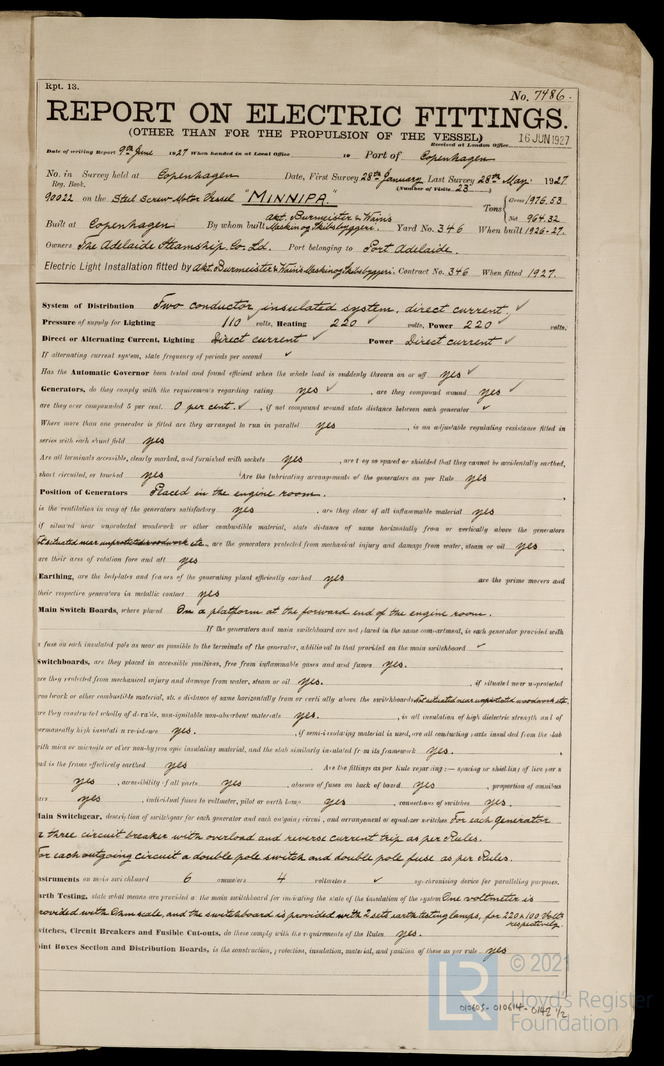 Rpt. 13.
No. 7486.
REPORT ON ELECTRIC FITTINGS.
(OTHER THAN FOR THE PROPULSION OF THE VESSEL)
Received at London Office 16 JUN 1927
Date of writing Report 9th June 1927 When handed in at Local Office 19 Port of Copenhagen
No. in Survey held at Copenhagen Date, First Survey 28th January Last Survey 28th May 1927
Reg. Book. (Number of Visits 23)
90022 on the Steel Screw Motor Vessel "MINNIPA" Tons { Gross 1976.53 Net 964.32
Built at Copenhagen By whom built Akt. Burmeister & Wain's Maskin og Skibsbyggeri. Yard No. 346 When built 1926-27.
Owners The Adelaide Steamship Co. Ld. Port belonging to Port Adelaide.
Electric Light Installation fitted by Akt. Burmeister & Wain's Maskin og Skibsbyggeri. Contract No. 346 When fitted 1927.
System of Distribution Two conductor insulated system, direct current. ✓
Pressure of supply for Lighting 110 ✓ volts, Heating 220 ✓ volts, Power 220 ✓ volts.
Direct or Alternating Current, Lighting Direct current ✓ Power Direct current ✓
If alternating current system, state frequency of periods per second ✓
Has the Automatic Governor been tested and found efficient when the whole load is suddenly thrown on or off yes ✓
Generators, do they comply with the requirements regarding rating yes ✓, are they compound wound yes ✓
are they over compounded 5 per cent. 0 per cent. ✓, if not compound wound state distance between each generator ✓
Where more than one generator is fitted are they arranged to run in parallel yes, is an adjustable regulating resistance fitted in
series with each shunt field yes
Are all terminals accessible, clearly marked, and furnished with sockets yes, are they so spaced or shielded that they cannot be accidentally earthed,
short circuited, or touched yes Are the lubricating arrangements of the generators as per Rule yes
Position of Generators Placed in the engine room.
is the ventilation in way of the generators satisfactory yes, are they clear of all inflammable material yes
if situated near unprotected woodwork or other combustible material, state distance of same horizontally from or vertically above the generators
Not situated near unprotected woodwork etc. are the generators protected from mechanical injury and damage from water, steam or oil yes
are their axes of rotation fore and aft yes
Earthing, are the bedplates and frames of the generating plant efficiently earthed yes are the prime movers and
their respective generators in metallic contact yes
Main Switch Boards, where placed On a platform at the forward end of the engine room.
If the generators and main switchboard are not placed in the same compartment, is each generator provided with
a fuse on each insulated pole as near as possible to the terminals of the generator, additional to that provided on the main switchboard ✓
Switchboards, are they placed in accessible positions, free from inflammable gases and acid fumes yes.
are they protected from mechanical injury and damage from water, steam or oil yes., if situated near unprotected
woodwork or other combustible material, state distance of same horizontally from or vertically above the switchboards Not situated near unprotected woodwork etc.
are they constructed wholly of durable, non-ignitable non-absorbent materials yes., is all insulation of high dielectric strength and of
permanently high insulation resistance yes., if semi-insulating material is used, are all conducting parts insulated from the slab
with mica or micanite or other non-hygroscopic insulating material, and the slab similarly insulated from its framework yes.
and is the frame effectively earthed yes Are the fittings as per Rule regarding:— spacing or shielding of live parts
yes, accessibility of all parts yes, absence of fuses on back of board yes, proportion of omnibus
bars yes, individual fuses to voltmeter, pilot or earth lamp yes, connections of switches yes.
Main Switchgear, description of switchgear for each generator and each outgoing circuit, and arrangement of equalizer switches For each generator
a three circuit breaker with overload and reverse current trip as per Rules.
For each outgoing circuit a double pole switch and double pole fuse as per Rules.
Instruments on main switchboard 6 ammeters 4 voltmeters ✓ synchronising device for paralleling purposes.
Earth Testing, state what means are provided at the main switchboard for indicating the state of the insulation of the system One voltmeter is
provided with Ohm scale, and the switchboard is provided with 2 sets earth testing lamps, for 220 & 100 Volts respectively.
Switches, Circuit Breakers and Fusible Cut-outs, do these comply with the requirements of the Rules yes.
Joint Boxes Section and Distribution Boards, is the construction, protection, insulation, material, and position of these as per rule yes
LR © 2021
Lloyd's Register
Foundation
010605-010614-0142 1/2